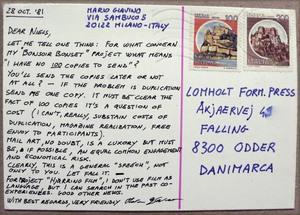 28 OCT. '81
MARIO GIAVINO
VIA SAMBUCO 5
20122 MILANO - ITALY
DEAR NIELS,
LET ME TELL ONE THING: FOR WHAT CONCERN
MY "BONSOIR BONSET" PROJECT WHAT MEANS
"I HAVE NO 100 COPIES TO SEND"?
YOU'LL SEND THE COPIES LATER OR NOT
AT ALL? - IF THE PROBLEM IS DUPLICATION
SEND ME ONE COPY. IT MUST BE CLEAR THE
FACT OF 100 COPIES IT'S A QUESTION OF
COST (I CAN'T, REALLY, SUBSTAIN COSTS OF
DUPLICATION, MAGAZINE REALIZATION, FREE
ENVOY TO PARTICIPANTS).
MAIL ART, NO DOUBT, IS A LUXORY BUT MUST
BE, IF POSSIBLE, AN EQUAL COMMON ENGAGEMENT
AND ECONOMICAL RISK.
CLEARLY, THIS IS A GENERAL "SPEECH", NOT
ONLY TO YOU. LET FALL IT. —
FOR PROJECT "HJØRRING FILM", I DON'T USE FILM AS
LANGUAGE, BUT I CAN SEARCH IN THE PAST CO-
EXPERIENCES. GOOD OTHER NEWS.
WITH BEST REGARDS, VERY FRIENDLY
100
ITALIA
200
ITALIA
LOMHOLT FORM. PRESS
AKJAERVEJ
FALLING
8300 ODDER
DANIMARCA